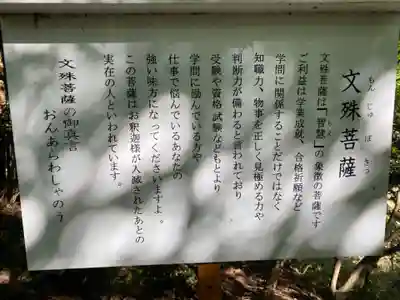 文殊菩薩
もん じゅ ぼ さつ
文殊菩薩は「智慧」の象徴の菩薩です
ちえ
ご利益は学業成就、合格祈願など
学問に関係することだけではなく
知職力、物事を正しく見極める力や
判断力が備わると言われており
受験や資格試験などもとより
学問に励んでいる方や
仕事で悩んでいるあなたの
強い味方になってくださいますよ。
この菩薩はお釈迦様が入滅されたあとの
実在の人といわれています。
文殊菩薩の御真言
おんあらわしゃのう